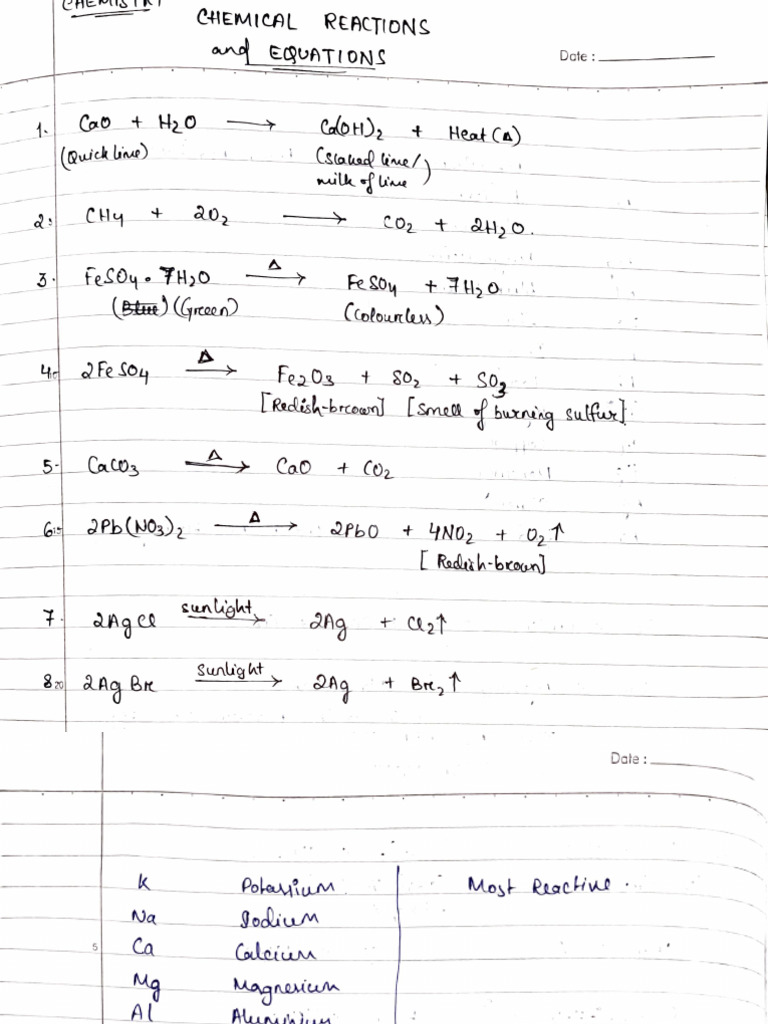 CHEMISTRY
CHEMICAL REACTIONS
and EQUATIONS
Date :
1. CaO + H2O → Ca(OH)2 + Heat (Δ)
(Quick lime) (Slaked lime/
milk of lime)
2. CH4 + 2O2 → CO2 + 2H2O.
3. FeSO4 · 7H2O Δ→ FeSO4 + 7H2O
(Blue) (Green) (Colourless)
4. 2FeSO4 Δ→ Fe2O3 + SO2 + SO3
[Redish-brown] [Smell of burning sulfur]
5. CaCO3 Δ→ CaO + CO2
6. 2Pb(NO3)2 Δ→ 2PbO + 4NO2 + O2↑
[Redish-brown]
7. 2AgCl sunlight→ 2Ag + Cl2↑
8. 2AgBr sunlight→ 2Ag + Br2↑
Date :
K Potassium Most Reactive.
Na Sodium
5 Ca Calcium
Mg Magnesium
Al Aluminium